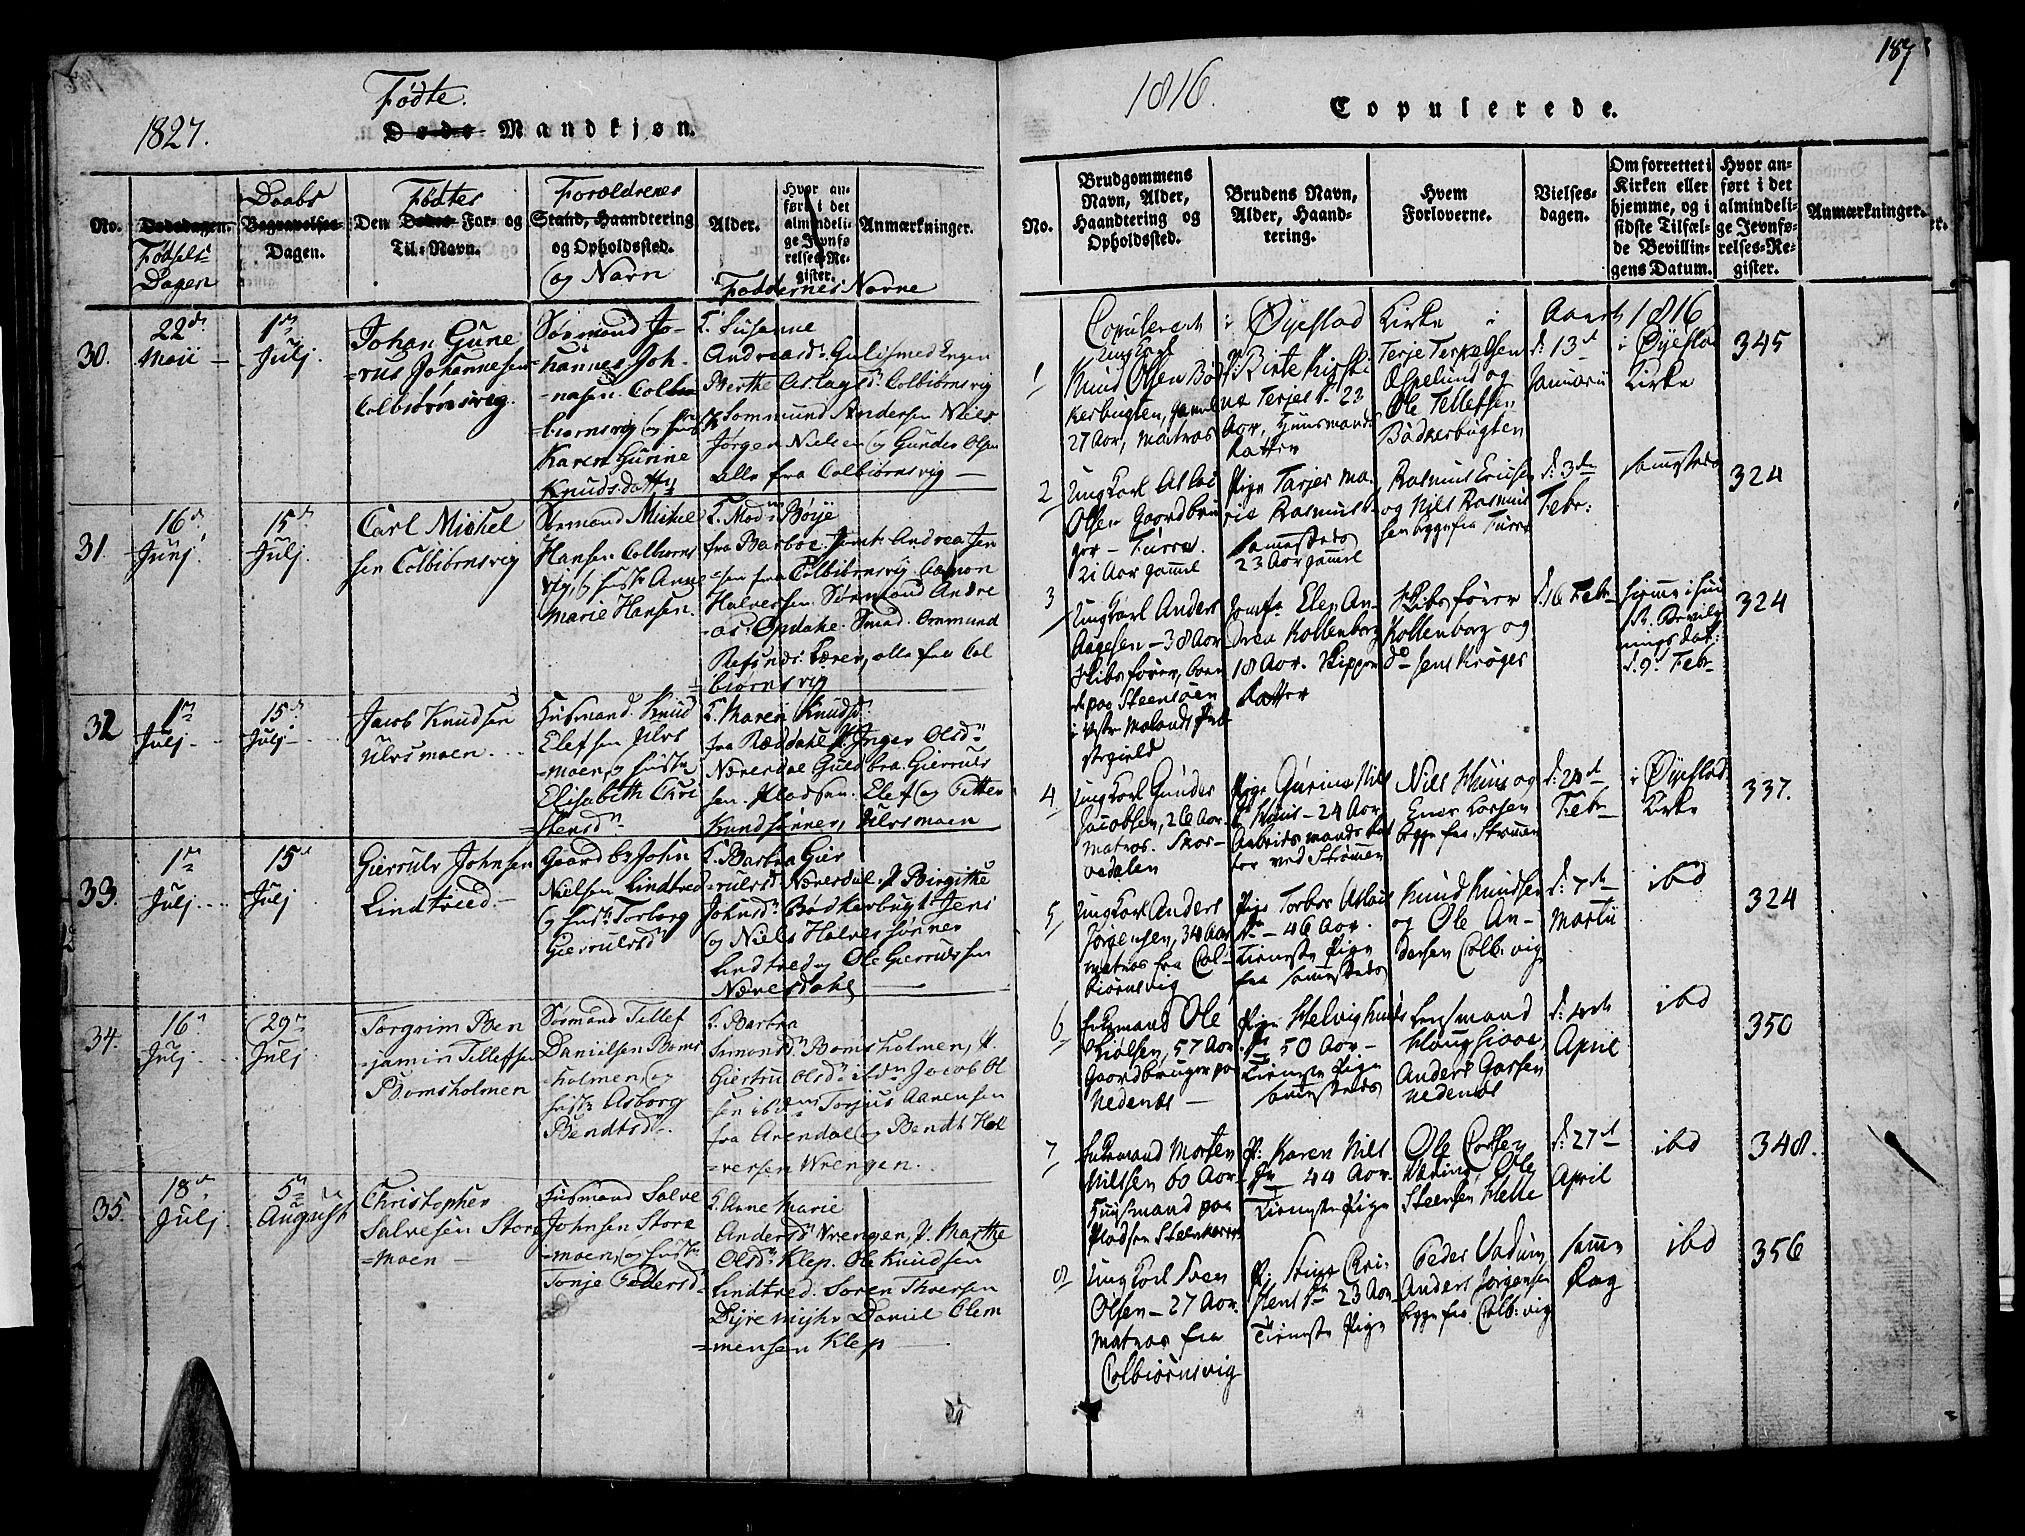 Fødte.
1827.
Døde Mandkjøn.
No.
Dødsdagen.
Fødsels
Dagen
Daabs
Begravelses-
Dagen.
Fødtes
Den Dødes For- og
Til-Navn.
Forældrenes
Stand, Haandtering
og Opholdssted.
og Navn
Alder.
Hvor an-
ført i det
almindeli-
ge Jevnfø
relses-Re-
gister.
Anmærkninger.
Faddernes Navne
30.
22de
Maii
1ste
Julj
Johan Gune
=rus Johannesen
Colbiørnsvig.
Sørmand Jo-
hannes Joh-
nasen. Colbn
biørnsvig og hust
Karen Gurine
Knudsdatter
T. Susanne
Andreasd.
Berthe Aslagsd. Colbiørnsvig
Sommund Andersen Niels
Jørgen Nielsen og Gunder Olsen
alle fra Colbiørnsvig
31.
16d
Junj
15d
Julj.
Carl Mickel
sen Colbiørnsvig
Sørmand Mickel
Hansen. Colbiørns
vig, og hustr Anne
Marie Hansen.
fra Barboe. Jomfr. Andrea Jen
sen fra Colbiørnsvig. Aamon
Halversen. Sørmand Andre
as Opdahl. Smed. Ommund
Refsnæs. Lærer, alle fra Col
biørnsvig
32
1ste
Julj
15d
Julj
Jacob Knudsen
Ulvsmoen
Husmand. Knud
Elefsen Ulvs
=moen, og hustr
Elisabeth Chri
=stensdr
T. Maren Knudsd.
fra Ræddahl P. Inger Olsdr
Næresdal Guldbra. Gierruls
sen. Pladsen. Elef og Petter
Knudsønner, Ulvsmoen
33.
1ste
Julj
15d
Julj
Gierrulv Johnsen
Lindtvied
Gaardbr. John
Nielsen Lindtved
og hustr. Torborg
Gierrulvsdr
T. Barbra Gier
=rulvsd. Næresdal. P. Birgithe
Johnsd. Bødkerbugt. Jens
og Niels Halvorsønner
Lindtved og Ole Gierrulvsen
Næresdahl
34.
16d
Julj
29d
Julj
Torgrim Ben
jamin Tellefsen
Bomsholmen
Sørmand Tellef
Danielsen Boms
=holmen, og
hustr. Asborg
Bendtsdr
T. Barbra
Simonsd. Bomsholmen, P.
Giertru Olsdr ibdn Jacob Ol
sen ibdm Torjus Aanensen
fra Arendal og Bendt Hal
=versen Wrengen.
35.
18d
Julj.
5te
August
Christopher
Salvesen Store
=moen
Husmand Salve
Johnsen Store
=moen, og hustr.
Tonje Pedersdr
T. Anne Marie
Andersdr Wrengen, P. Marthe
Olsdr Klep. Ole Knudsen
Lindtved. Søren Thversen
Dyre myhr Daniel Clem
=mensen Klep
1816.
Copulerede.
187
No.
Brudgommens
Navn, Alder,
Haandtering og
Opholdssted.
Brudens Navn,
Alder, Haand-
tering.
Hvem
Forloverne.
Vielses-
dagen.
Om forrettet i
Kirken eller
hjemme, og i
sidste Tilfæl-
de Bevillin-
gens Datum.
Hvor an-
ført i det
almindeli-
ge Jevnfø-
relses-Re-
gister.
Anmærkninger.
Copulerede i Øyestad Kirke i Aaret 1816
1
Ungkarl
Knud Olsen Bød
kerbugten, gaml
27 Aar, Matros
P: Birte Kirsti-
ne Terjesd. 23
Aar, Huusmands
datter
Terje Terkelsen
Espelund og
Ole Tellefsen
Bödkerbugten
d: 13d
Januarii
i Øyestad
Kirke
345
2
Ungkarl Asbiø
Olsen Gaardbru
ger – Furre.
21 Aar gammel
Pige Tarjer Ma-
rie Rasmusd.
sammesteds
23 Aar gammel
Rasmus Ericksen
og Nils Rasmus
sen begge fra Furre
d: 3de
Febr:
sammesteds
324
3
Ungkarl Anders
Aagesen – 38 Aar
Skibsfører, boen
de paa Steensøen
i Vestre Molands Præ
stegield
Jomfr. Elen An-
drea Kollenborg
18 Aar. Skippers
datter
Skibsfører
Kollenborg og
do Jens Krøger
d. 16 Febr
hiemme i huus
K. Bevilg
nings dat:
d. 9. Febr
324
4
Ungkarl Gunder
Jacobsen, 26 Aar.
Matros. Skar-
vedalen
Pige Gurine Nils
dr Huus – 24 Aar
Arbeidsmands dat
ter ved Strømen
Niels Huus og
Ener Larsen
begge fra Strømen
d: 20d
Febr
i Øyestad
Kirke
337.
5
Ungkarl Anders
Jørgensen, 34 Aar
Matros fra Col-
biørnsvig
Pige Torbor Aslaks
dr – 46 Aar.
Tieneste Pige
fra sammesteds
Knud Knudsen
og Ole An-
dersen Colb:vig
d: 7de
Martii
ibd
324
6
Enkemand Ole
Kiølsen, 57 Aar.
Gaardbruger paa
Nedenæs
Pige Helvig Knuds
dr 50 Aar –
Tieneste Pige
sammesteds
Lensmand
Anders Gassen
Nedenæs
d: 4de
April
ibd
350
7
Enkemand Morten
Nilssen 60 Aar
Huusmand paa
Pladsen Steenharen
P: Karen Nils
dr – 44 Aar.
Tieneste Pige
Ole
Ole
Steensen Helle
d: 27d
April
ibd
348.
8
Ungkarl Sven
Olsen – 27 Aar.
Matros fra
Colbiørnsvig
P: Stine Chri-
stensdr 23 Aar
Tieneste Pige
Peder Vadum
Anders Jørgensen
begge fra Colb:vig
samme
Dag
ibd
356